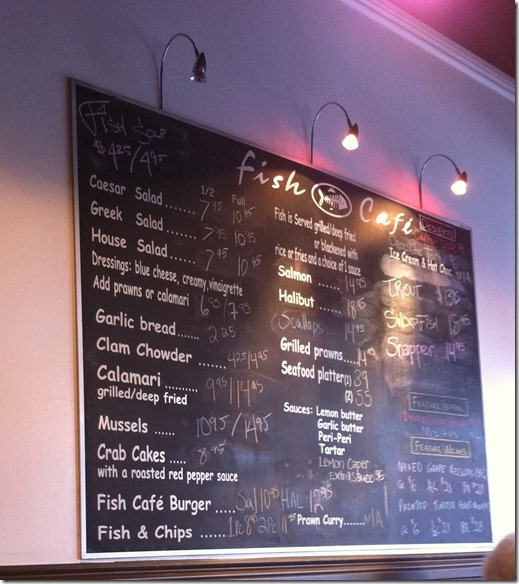 Fish Soup
$4.25/4.95
fish Café
1/2 Full
Caesar Salad ....... 7.95 10.95
Greek Salad ....... 7.95 10.95
House Salad ....... 7.95 10.95
Dressings: blue cheese, creamy, vinaigrette
Add prawns or calamari 6.95/7.95
Garlic bread....... 2.25
Clam Chowder ....... 4.25/4.95
Calamari .......... 9.95/14.95
grilled/deep fried
Mussels ...... 10.95/14.95
Crab Cakes ..... 8.95
with a roasted red pepper sauce
Fish Café Burger ..... Sal 10.95 HAL 12.95
Fish & Chips ...... 1Pc 8.95 2Pc 11.95
Fish is Served grilled/deep fried
or blackened with
rice or fries and a choice of 1 sauce
Salmon ....... 14.95
Halibut ....... 18.95
Scallops 14.95
Grilled prawns ..... 14.95
Seafood platter(1) 39
(2) 55
Sauces: Lemon butter
Garlic butter
Peri-Peri
Tartar
Lemon Caper
Extra Sauce
Prawn Curry....... N/A
DESSERTS
Ice Cream & Hot Choc N/A
TROUT
SWORDFISH 15.95
Snapper 14.95
FEATURE WINES
NAKED GRAPE
PAINTED TURTLE